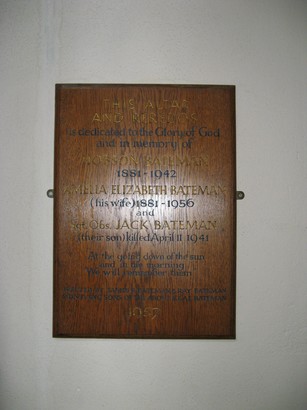 THIS ALTAR
AND REREDOS
is dedicated to the Glory of God
and in memory of
ROBSON BATEMAN
1881-1942
AMELIA ELIZABETH BATEMAN
(his wife) 1881-1956
and
Sgt. Obs. JACK BATEMAN
(their son) killed April 11 1941
At the going down of the sun
and in the morning,
We will remember them
BATEMAN
1957